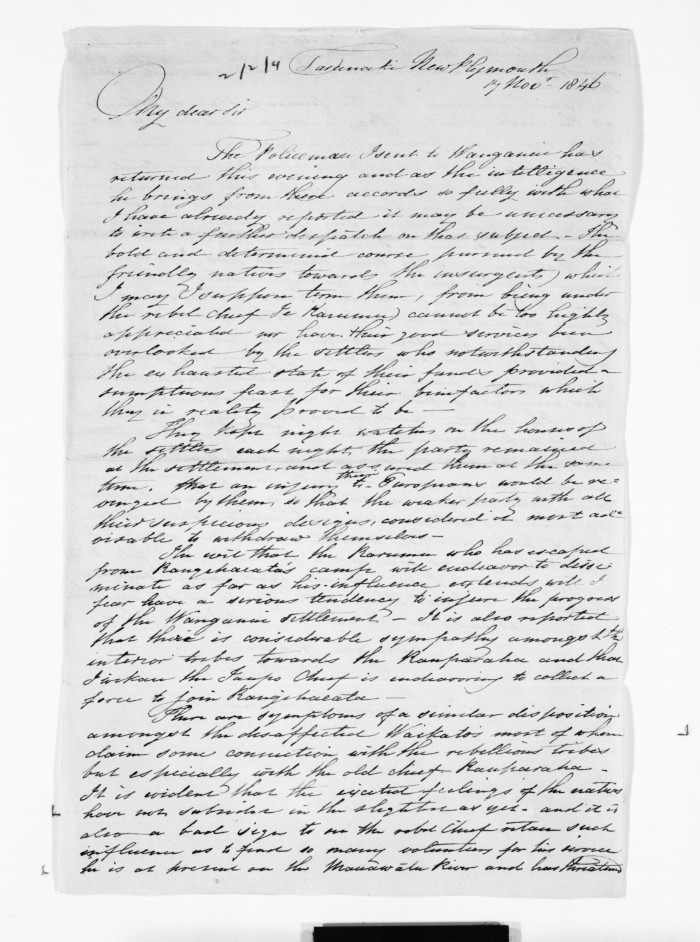 2/2/4
Taranaki New Plymouth
17 Novr 1846
My dear Sir
The Policeman I sent to Wanganui has
returned this evening and as the intelligence
he brings from there accords so fully with what
I have already reported it may be unnecessary
to write a further despatch on that subject – The
bold and determined course pursued by the
friendly natives towards the insurgents, which
I may I suppose term them, from being under
the rebel chief Te Karumu) cannot be too highly
appreciated nor have their good services been
overlooked by the settlers who notwithstanding
the exhausted state of their funds provided a
sumptuous feast for their benefactors which
they in reality proved to be –
They kept night watches on the houses of
the settlers each night, the party remained
at the settlement and assured them at the same
time. that an injury to them Europeans would be re-
venged by them, so that the weaker party with all
their suspicious designs, considered it most ad-
visable to withdraw themselves –
The evil that the Karumu who has escaped
from Rangihaeata's camp will endeavor to disse
minate as far as his influence extends will I
fear have a serious tendency to injure the progress
of the Wanganui settlement – It is also reported
that there is considerable sympathy amongst the
interior tribes towards the Rauparaha and that
the Taupo Chief is endeavoring to collect a
force to join Rangihaeata –
There are symptoms of a similar disposition
amongst the disaffected Waikatos most of whom
claim some connection with the rebellious tribes
but especially with the old chief Rauparaha –
It is evident that the excited feelings of the natives
have not subsided in the slightest as yet – and it is
also a bad sign to see the rebel Chief retain such
influence as to find so many volunteers for his service
he is at present on the Manawatu River and has threatened